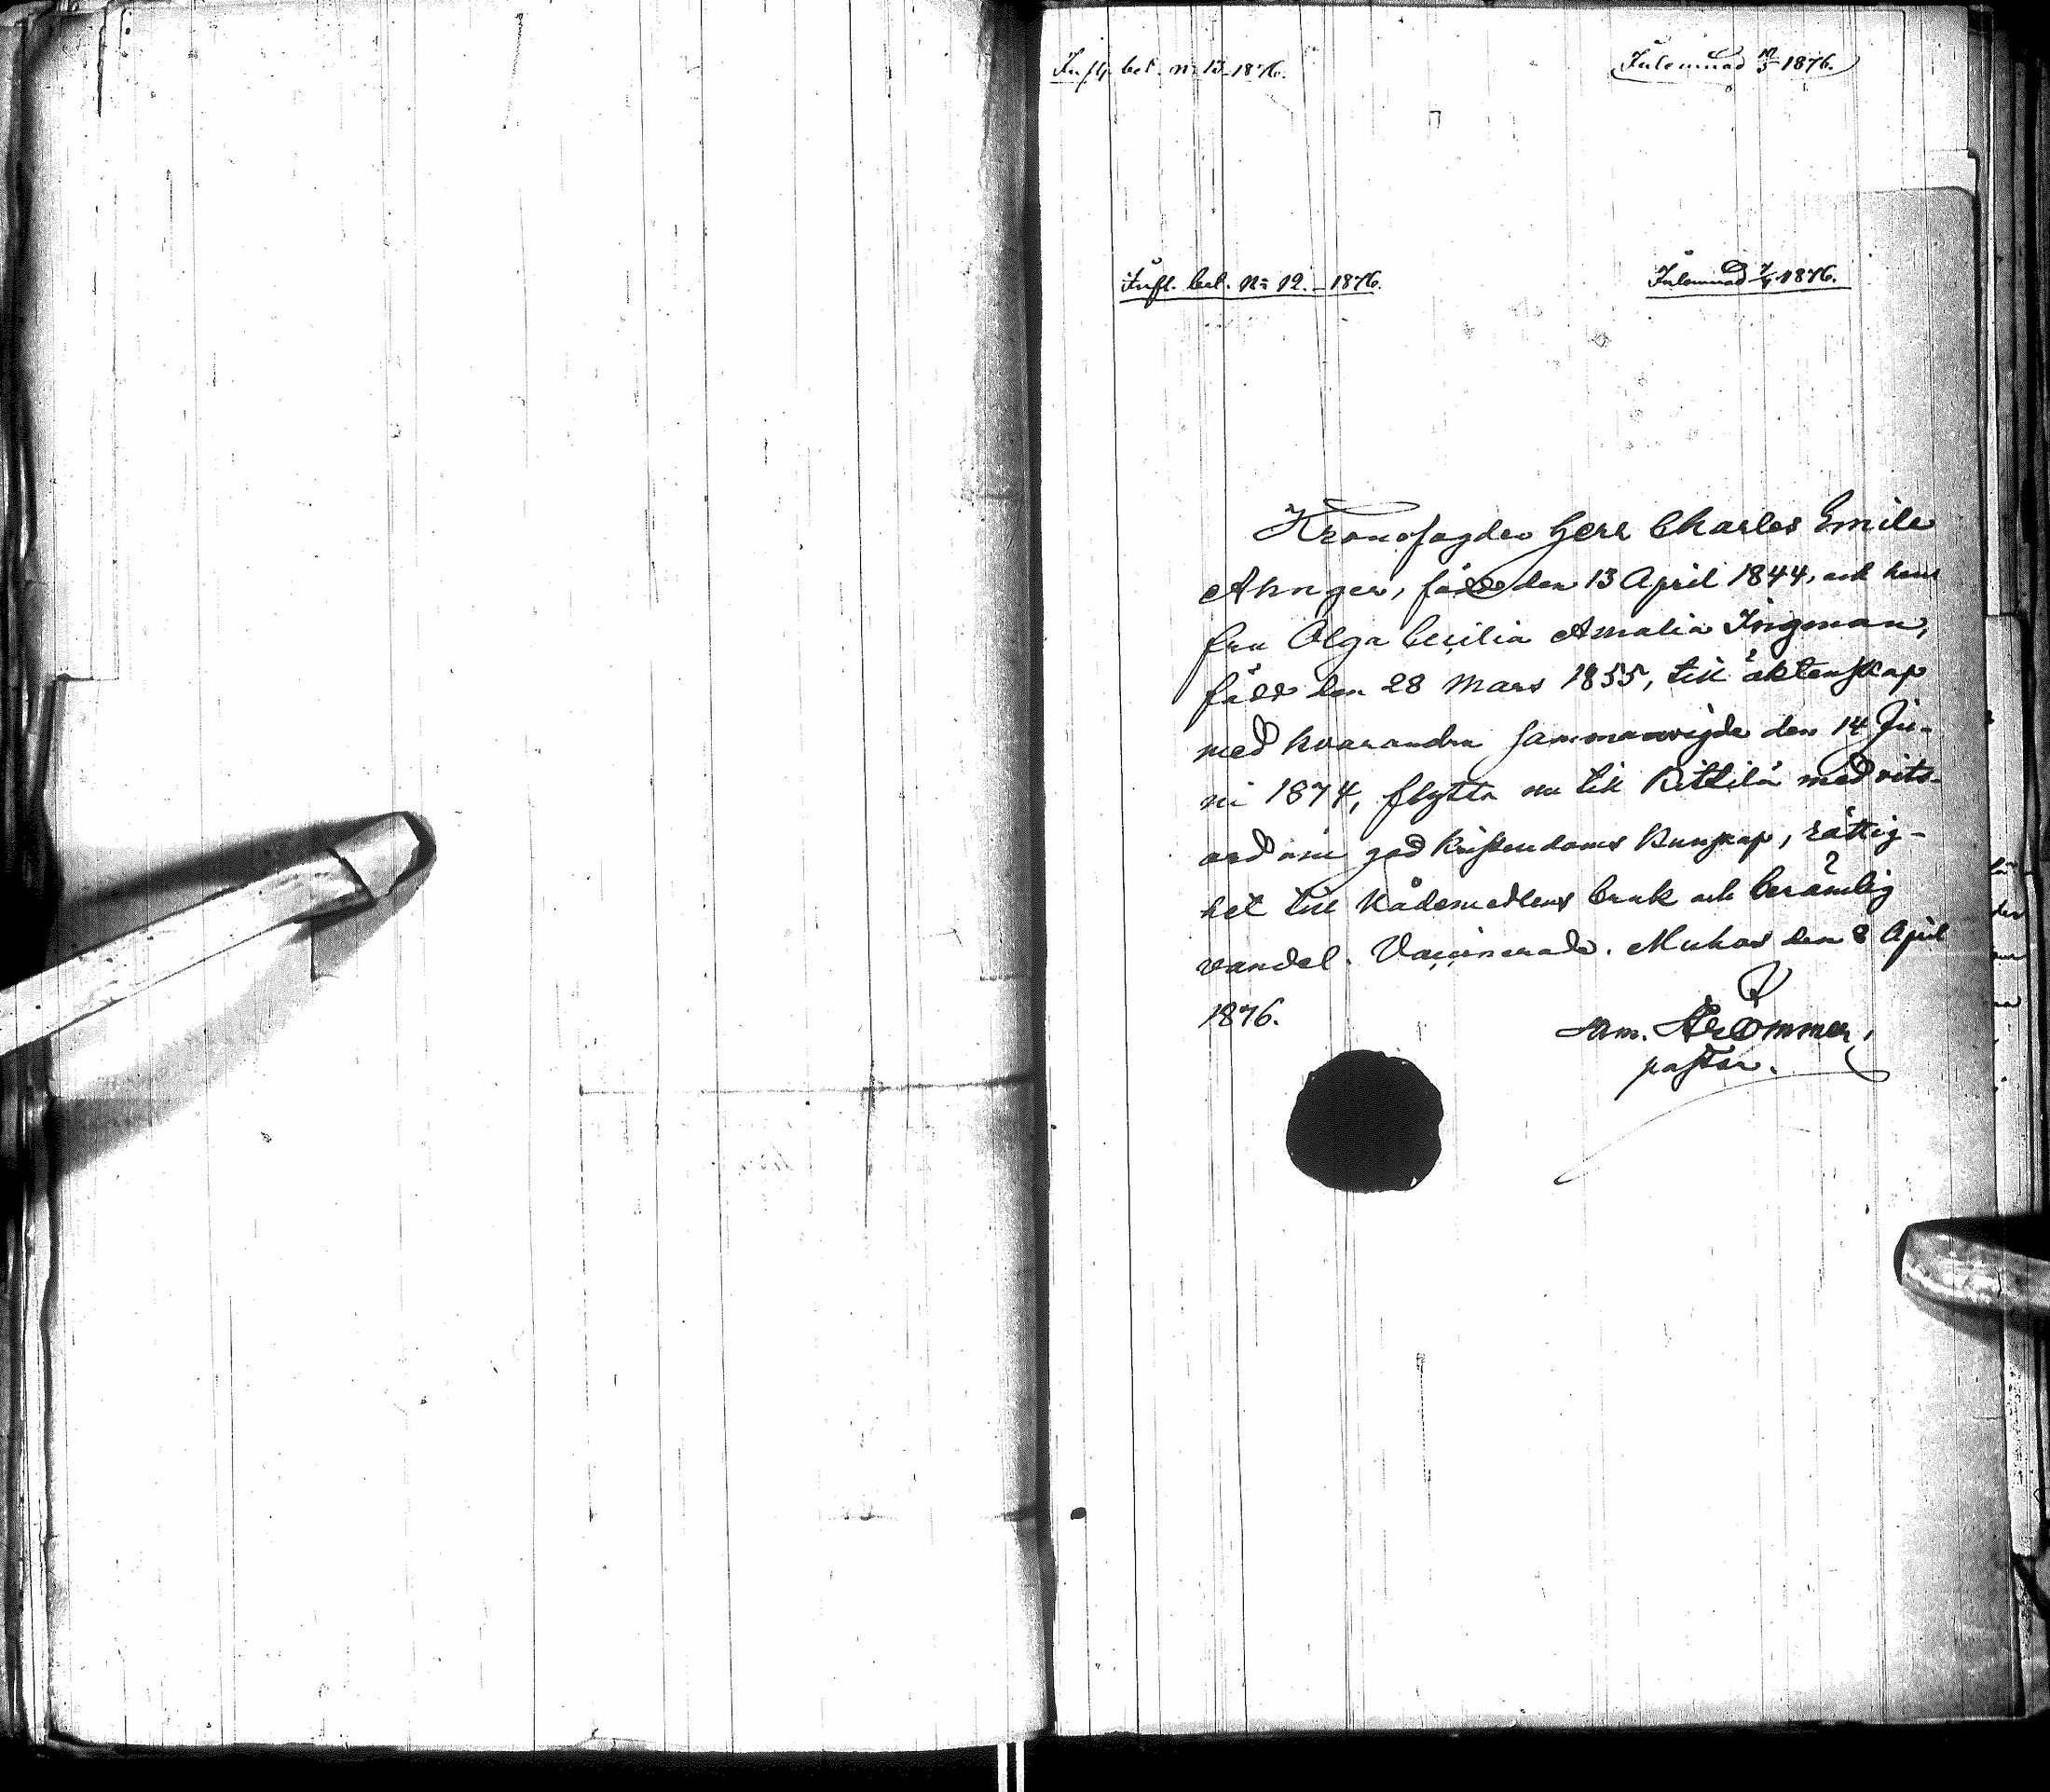 Infl. bet. No 13 1876.
Inlemnad 10/5 1876.
Infl. bet. No 12. 1876.
Inlemnad 7/5 1876.
Kronofogden Herr Charles Emile
Ahnger, född den 13 April 1844, och hans
fru Olga Cecilia Amalia Ingman,
född den 28 Mars 1855, till äktenskap
med hvarandra sammanvigde den 14 Ju-
ni 1874, flytta nu till Kittilä med vits-
ord om god kristendoms kunskap, rättig-
het till Nådemedlens bruk och berömlig
vandel. Vaccinerade. Muhos den 8 April
1876.
Sam. Krömmer,
pastor.